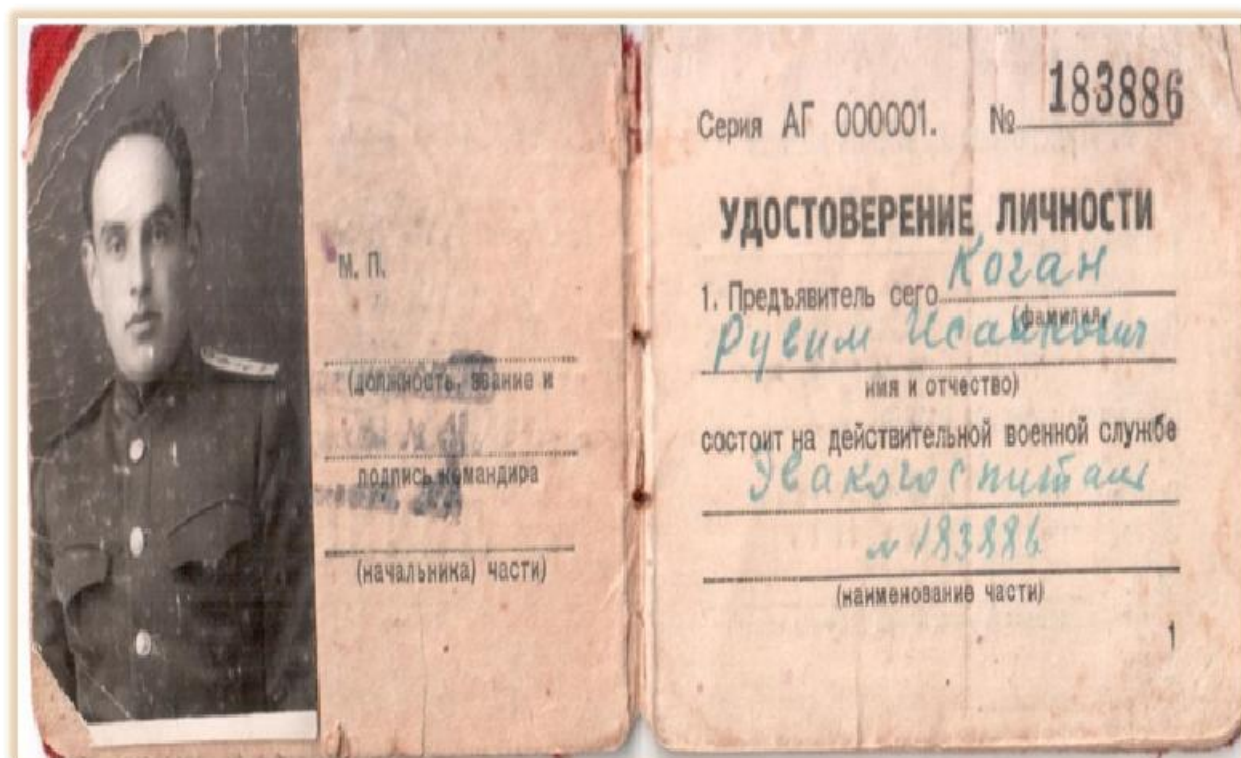 М. П.
(должность, звание и
подпись командира
(начальника) части)
Серия АГ 000001. № 183886
УДОСТОВЕРЕНИЕ ЛИЧНОСТИ
1. Предъявитель сего Коган
(фамилия,
Рувим Исаакович
имя и отчество)
состоит на действительной военной службе
Эвакогоспиталь
№ 183886
(наименование части)
1